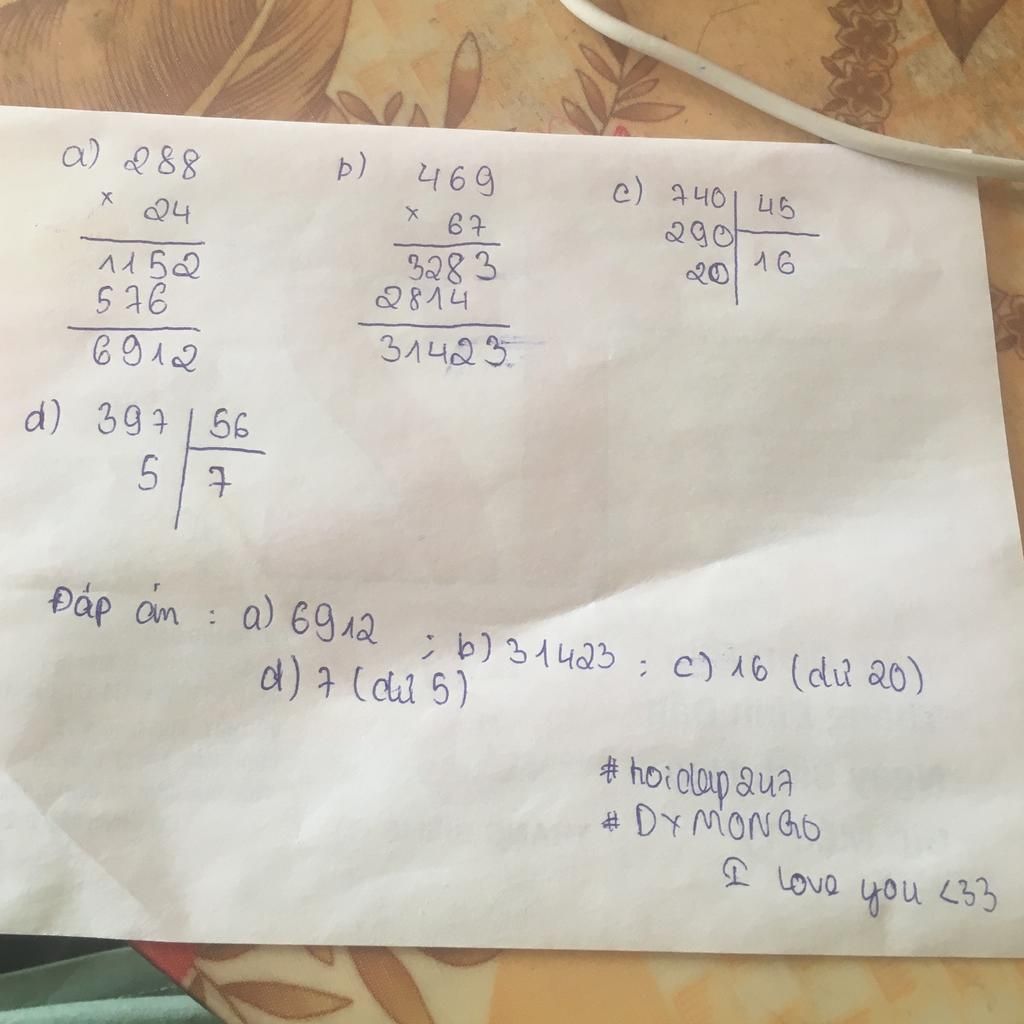 a) 288
× 24
1152
576
6912
b) 469
× 67
3283
2814
31423
c) 740 45
290 16
20
d) 397 56
5 7
Đáp án : a) 6912 ; b) 31423 ; c) 16 (dư 20)
d) 7 (dư 5)
#hoidap247
#DYMONGO
I love you <33